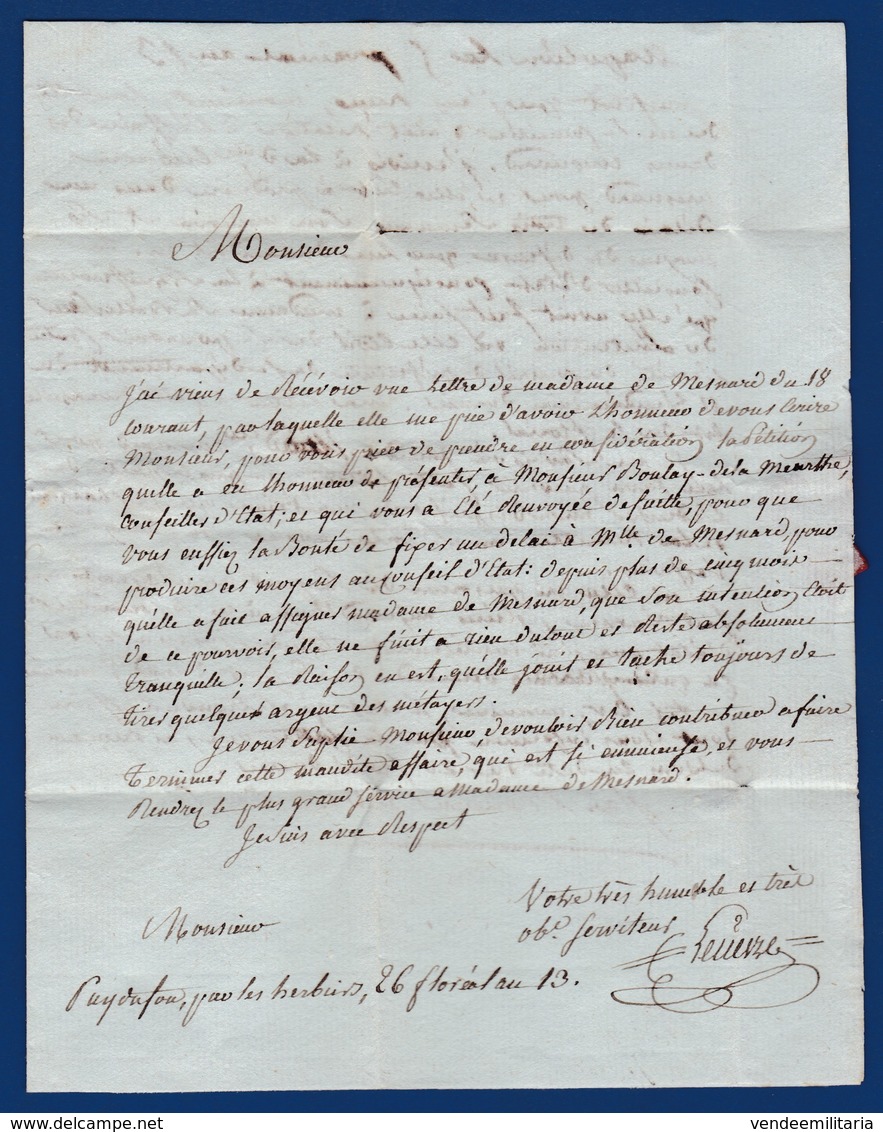 Monsieur
J'ai viens de Récévoir une Lettre de madame de Mesnard du 18
courant, par laquelle elle me prie d'avoir L'honneur de vous Ecrire
Monsieur, pour vous prier de prendre en considération la Pétition
qu'elle a eu lhonneur de présenter, à Monsieur Boulay-dela Meurthe,
conseiller d'Etat; et qui vous a Eté Renvoyée desuitte, pour que
vous eussiez la Bonté de fixer un delai à Mlle de Mesnard, pour
produire ces moyens au conseil d'Etat: depuis plus de cinq mois
qu'elle a fait assigner madame de Mesnard, que Son intention Etoit
de ce pourvoir, elle ne finit a rien dutout et Reste absolument
Tranquelle; la Raison en est, qu'elle jouit et tache toujours de
Tirer quelques argent des métayers.
Je vous Suplie Monsieur, de vouloir Bien contribuer a faire
Terminer cette maudite affaire, qui est si ennuieuse, et vous
Rendrez le plus grand service a Madame de Mesnard.
Je Suis avec Respect
Votre très humble et très
obt. serviteur
Monsieur
Puydufou, par les herbiers, 26 floréal au 13.
delcampe.net
vendeemilitaria